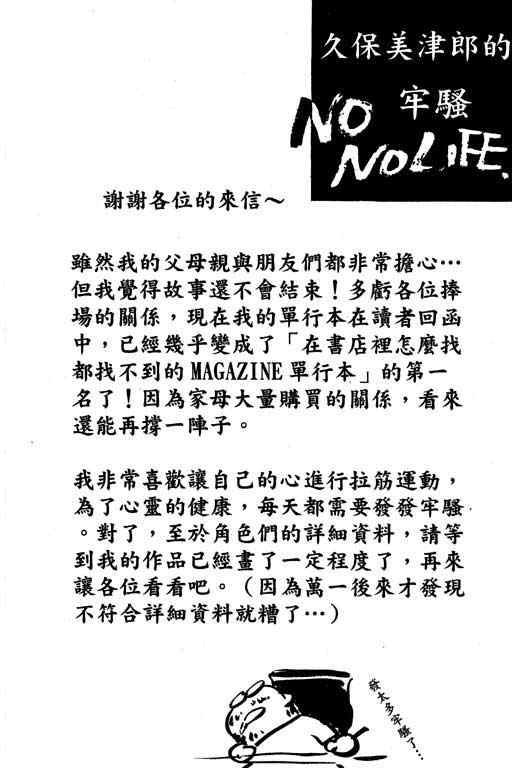 久保美津郎的
牢騷
NO
NO LIFE.
謝謝各位的來信～
雖然我的父母親與朋友們都非常擔心…
但我覺得故事還不會結束！多虧各位捧
場的關係，現在我的單行本在讀者回函
中，已經幾乎變成了「在書店裡怎麼找
都找不到的MAGAZINE單行本」的第一
名了！因為家母大量購買的關係，看來
還能再撐一陣子。
我非常喜歡讓自己的心進行拉筋運動，
為了心靈的健康，每天都需要發發牢騷
。對了，至於角色們的詳細資料，請等
到我的作品已經畫了一定程度了，再來
讓各位看看吧。（因為萬一後來才發現
不符合詳細資料就糟了…）
發太多牢騷了…